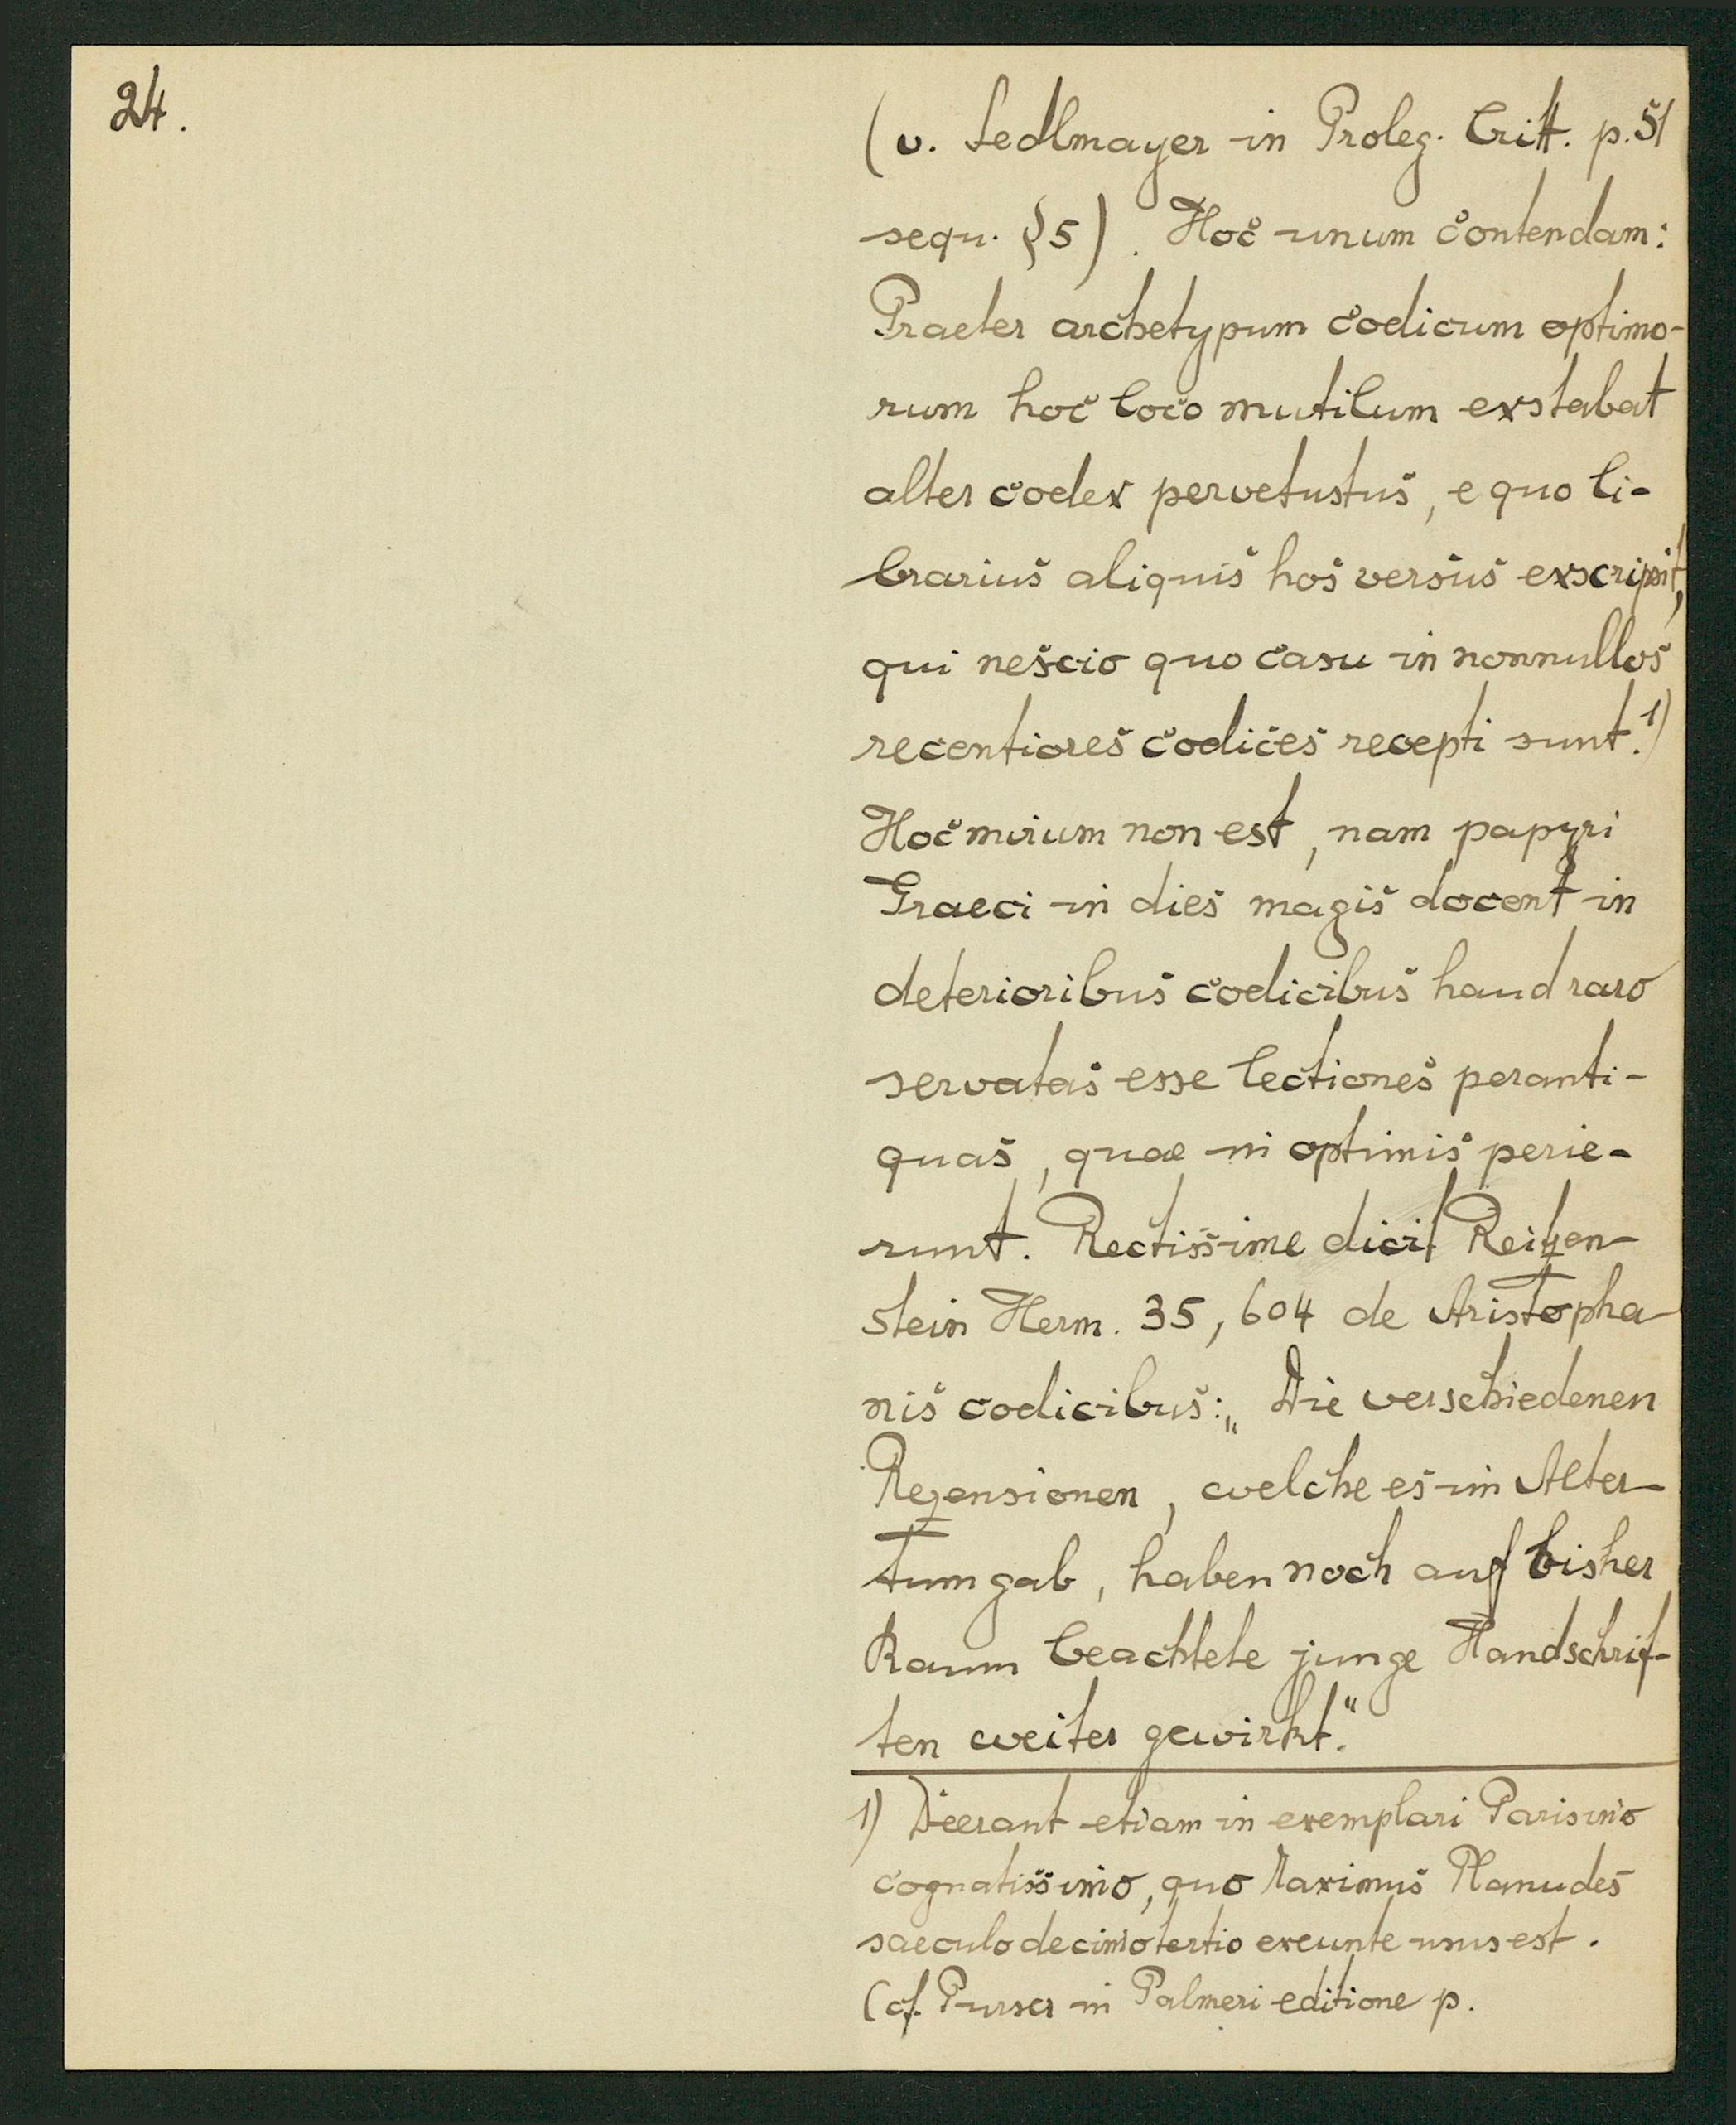 24.
(v. Sedlmayer in Proleg. Critt. p. 51
sequ. §5). Hoc unum contendam:
Praeter archetypum codicum optimo-
rum hoc loco mutilum exstabat
alter codex pervetustus, e quo li-
brarius aliquis hos versus exscripsit,
qui nescio quo casu in nonnullos
recentiores codices recepti sunt.1)
Hoc mirum non est, nam papyri
Graeci in dies magis docent in
deterioribus codicibus haud raro
servatas esse lectiones peranti-
quas, quae in optimis perie-
runt. Rectissime dicit Reitzen-
stein Herm. 35, 604 de Aristopha-
nis codicibus: „Die verschiedenen
Rezensionen, welche es im Alter-
tum gab, haben noch auf bisher
kaum beachtete junge Handschrif-
ten weiter gewirkt."
1) Deerant etiam in exemplari Parisino
cognatissimo, quo Maximus Planudes
saeculo decimo tertio exeunte usus est.
(cf. Purser in Palmeri editione p.